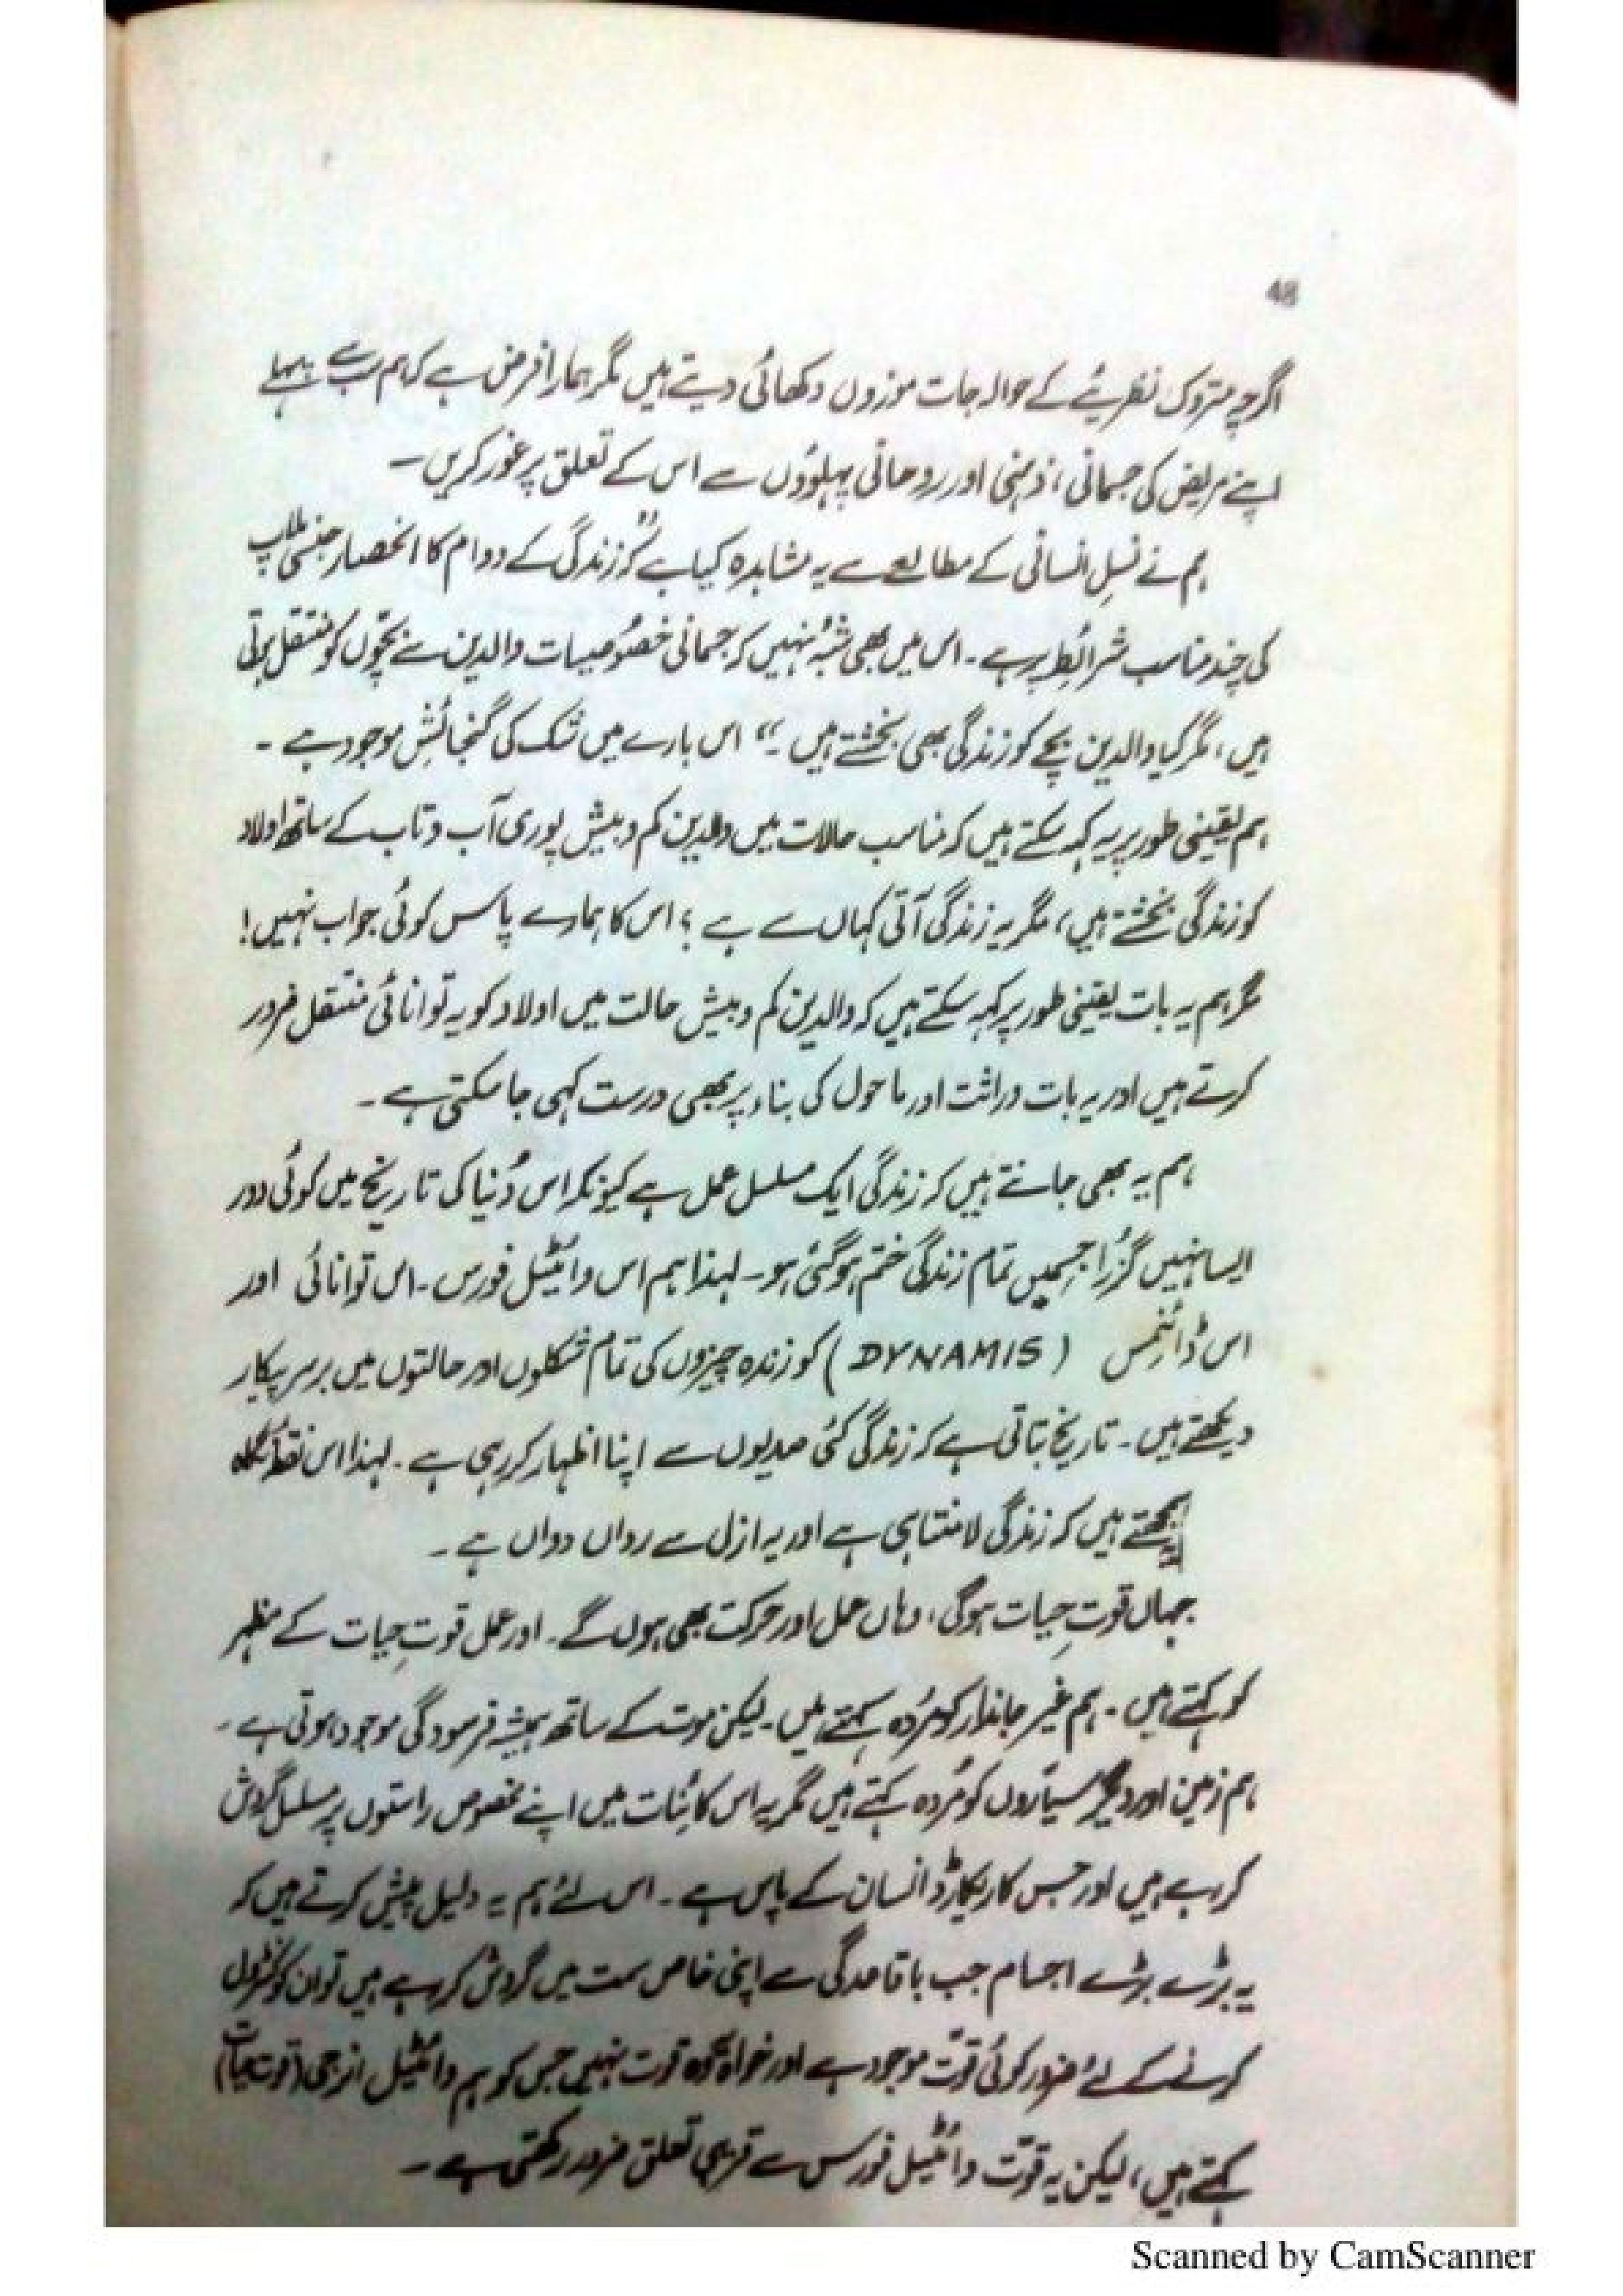 48
اگرچہ متروک نظریئے کے حوالہ جات موزوں دکھائی دیتے ہیں مگر ہمارا فرض ہے کہ ہم سب سے پہلے
اپنے مریض کی جسمانی، ذہنی اور روحانی پہلوؤں سے اس کے تعلق پر غور کریں۔
ہم نے نسلِ انسانی کے مطالعے سے یہ مشاہدہ کیا ہے "کہ زندگی کے دوام کا انحصار جنسی ملاپ
کی چند مناسب شرائط پر ہے۔ اس میں بھی شبہ نہیں کہ جسمانی خصوصیات والدین سے بچّوں کو منتقل ہوتی
ہیں، مگر کیا والدین بچے کو زندگی بھی بخشتے ہیں۔" اس بارے میں شک کی گنجائش موجود ہے۔
ہم یقینی طور پر یہ کہہ سکتے ہیں کہ مناسب حالات میں والدین کم و بیش پوری آب و تاب کے ساتھ اولاد
کو زندگی بخشتے ہیں، مگر یہ زندگی آتی کہاں سے ہے؟ اس کا ہمارے پاس کوئی جواب نہیں!
مگر ہم یہ بات یقینی طور پر کہہ سکتے ہیں کہ والدین کم و بیش حالت میں اولاد کو یہ توانائی منتقل ضرور
کرتے ہیں اور یہ بات وراثت اور ماحول کی بناء پر بھی درست کہی جا سکتی ہے۔
ہم یہ بھی جانتے ہیں کہ زندگی ایک مسلسل عمل ہے کیونکہ اس دُنیا کی تاریخ میں کوئی دور
ایسا نہیں گزرا جسمیں تمام زندگی ختم ہو گئی ہو۔ لہذا ہم اس وائیٹل فورس۔ اس توانائی اور
اس ڈائنمس (DYNAMIS) کو زندہ چیزوں کی تمام شکلوں اور حالتوں میں برسرِ پیکار
دیکھتے ہیں۔ تاریخ بتاتی ہے کہ زندگی کئی صدیوں سے اپنا اظہار کر رہی ہے۔ لہذا اس نقطۂ نگاہ
سمجھتے ہیں کہ زندگی لامتناہی ہے اور یہ ازل سے رواں دواں ہے۔
جہاں قوتِ حیات ہوگی، وہاں عمل اور حرکت بھی ہوں گے۔ اور عمل قوتِ حیات کے مظہر
کو کہتے ہیں۔ ہم غیر جاندار کو مُردہ کہتے ہیں۔ لیکن موت کے ساتھ ہمیشہ فرسودگی موجود ہوتی ہے۔
ہم زمین اور دیگر سیّاروں کو مُردہ کہتے ہیں مگر یہ اس کائنات میں اپنے مخصوص راستوں پر مسلسل گردش
کر رہے ہیں اور جس کا ریکارڈ انسان کے پاس ہے۔ اس لئے ہم یہ دلیل پیش کرتے ہیں کہ
یہ بڑے بڑے اجسام جب باقاعدگی سے اپنی خاص سمت میں گردش کر رہے ہیں تو ان کو کنٹرول
کرنے کے لئے ضرور کوئی قوّت موجود ہے اور خواہ وہ قوت نہیں جس کو ہم وائیٹل انرجی (قوت حیات)
کہتے ہیں، لیکن یہ قوّت وائیٹل فورس سے قریبی تعلق ضرور رکھتی ہے۔
Scanned by CamScanner